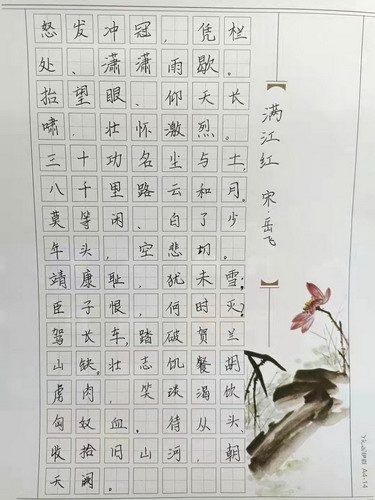 怒发冲冠,凭栏
处、潇潇雨歇。
抬望眼、仰天长
啸,壮怀激烈。
三十功名尘与土,
八千里路云和月。
莫等闲、白了少
年头,空悲切。
靖康耻,犹未雪;
臣子恨,何时灭?
驾长车,踏破贺兰
山缺。壮志饥餐胡
虏肉,笑谈渴饮
匈奴血。待从头、
收拾旧山河,朝
天阙。
满江红 宋·岳飞